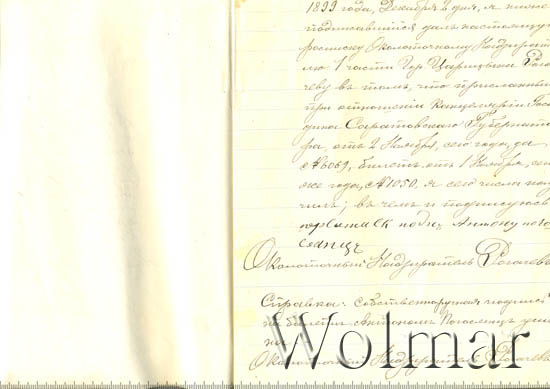 1899 года, Декабря 2 дня, я ниже
подписавшийся далъ настоящую
росписку Околоточному Надзирате
лю 1 части Гор. Царицына Рога
чеву въ томъ, что присланный
при отношении Канцелярии Гос
дина Саратовскаго Губернато
ра, отъ 2 Ноября, сего года, за
№ 6069, билетъ отъ 1 Ноября, сего
же года, № 1050, я сего числа полу
чилъ; въ чемъ и подписуюсь
подп. Антону
Околоточный Надзиратель Рогачевъ
Справка: Собственноручная подпись
на билете Антономъ
на
Околоточный Надзиратель Рогачевъ
Wolmar